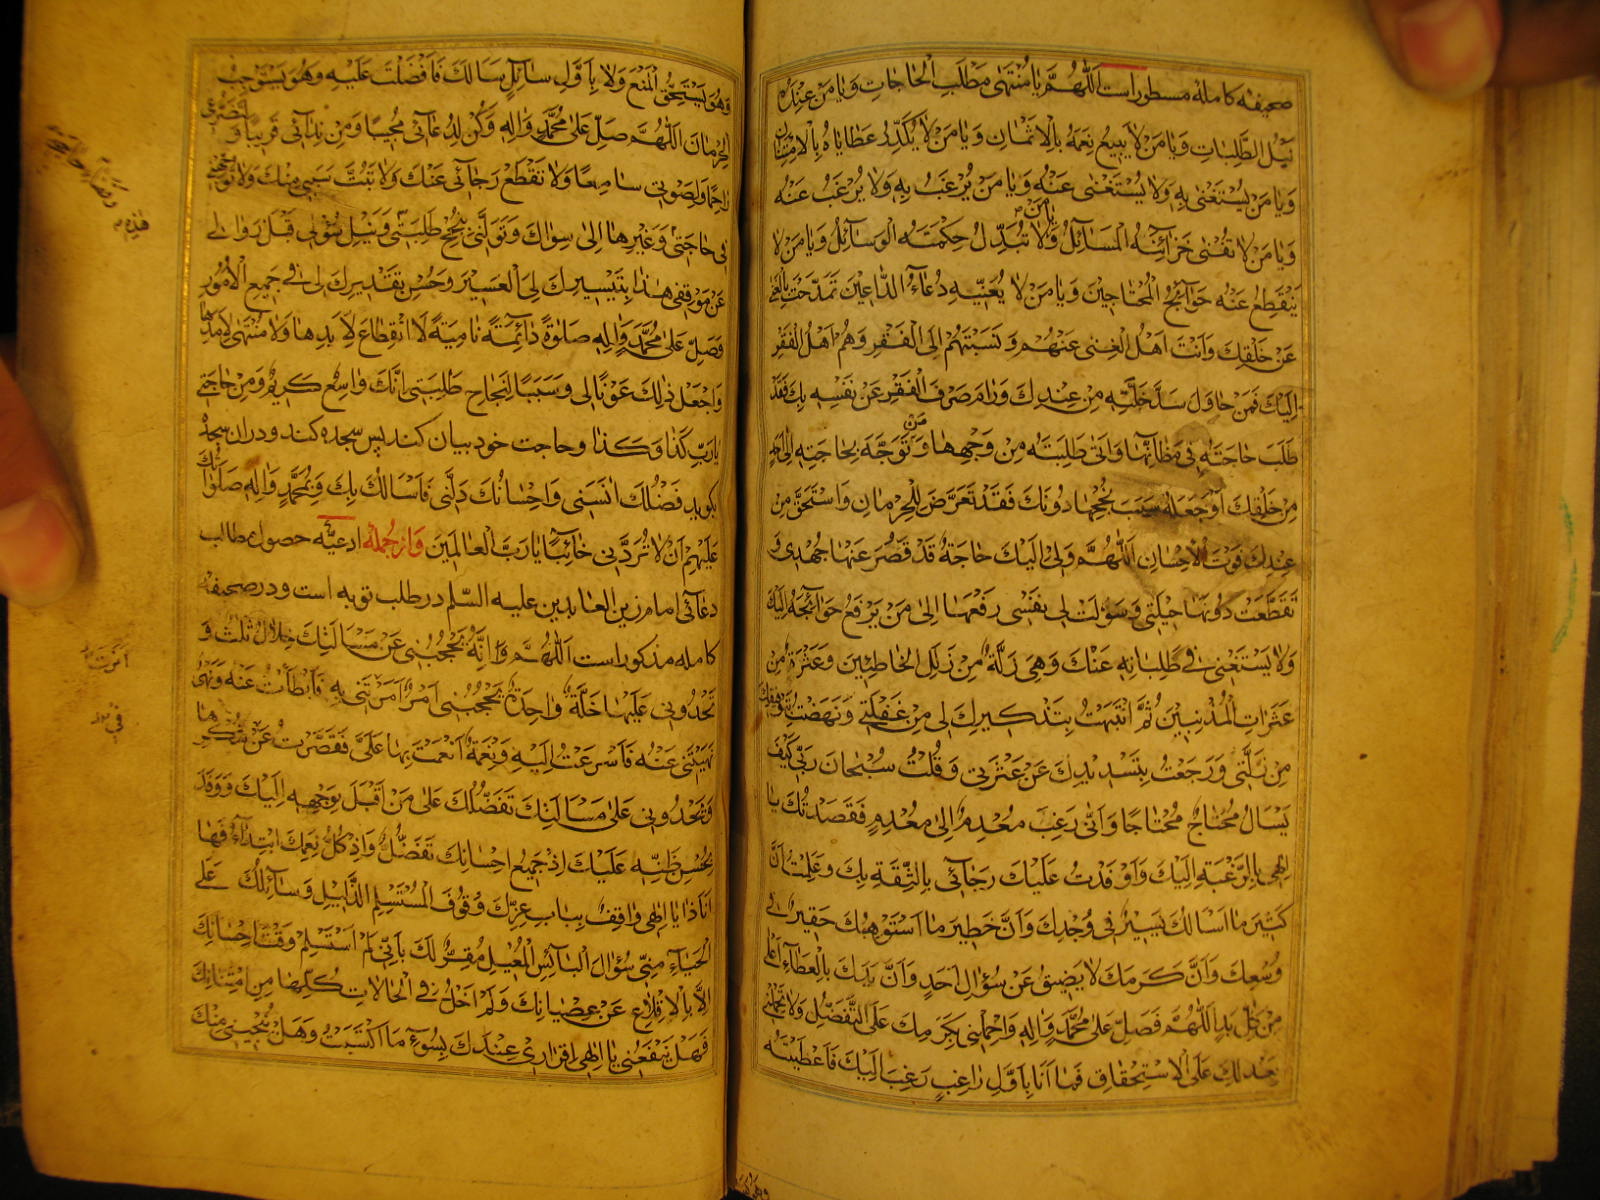 صحیفه کامله مسطور است اَللّٰهُمَّ یَا مُنْتَهٰی مَطْلَبِ الْحَاجَاتِ وَیَا مَنْ عِنْدَهُ
نَیْلُ الطَّلِبَاتِ وَیَا مَنْ لَا یَبِیعُ نِعَمَهُ بِالْاَثْمَانِ وَیَا مَنْ لَا یُکَدِّرُ عَطَایَاهُ بِالْاِمْتِنَانِ
وَیَا مَنْ یُسْتَغْنٰی بِهِ وَلَا یُسْتَغْنٰی عَنْهُ وَیَا مَنْ یُرْغَبُ بِهِ وَلَا یُرْغَبُ عَنْهُ
وَیَا مَنْ لَا تُفْنٰی خَزَائِنَهُ الْمَسَائِلُ وَیَا مَنْ لَا تُبَدِّلُ حِکْمَتَهُ الْوَسَائِلُ وَیَا مَنْ لَا
یَنْقَطِعُ عَنْهُ حَوَائِجُ الْمُحْتَاجِینَ وَیَا مَنْ لَا یُعَنِّیهِ دُعَاءُ الدَّاعِینَ تَمَدَّحْتَ بِالْغَنَاءِ
عَنْ خَلْقِكَ وَاَنْتَ اَهْلُ الْغِنٰی عَنْهُمْ وَنَسَبْتَهُمْ اِلَی الْفَقْرِ وَهُمْ اَهْلُ الْفَقْرِ
اِلَیْكَ فَمَنْ حَاوَلَ سَدَّ خَلَّتِهِ مِنْ عِنْدِكَ وَرَامَ صَرْفَ الْفَقْرِ عَنْ نَفْسِهِ بِكَ فَقَدْ
طَلَبَ حَاجَتَهُ فِی مَظَانِّهَا وَاَتٰی طَلِبَتَهُ مِنْ وَجْهِهَا وَمَنْ تَوَجَّهَ بِحَاجَتِهِ اِلٰی اَحَدٍ
مِنْ خَلْقِكَ اَوْ جَعَلَهُ سَبَبَ نُجْحِهَا دُونَكَ فَقَدْ تَعَرَّضَ لِلْحِرْمَانِ وَاسْتَحَقَّ مِنْ
عِنْدِكَ فَوْتَ الْاِحْسَانِ اَللّٰهُمَّ وَلِی اِلَیْكَ حَاجَةٌ قَدْ قَصُرَ عَنْهَا جُهْدِی وَ
تَقَطَّعَتْ دُونَهَا حِیلَتِی وَسَوَّلَتْ لِی نَفْسِی رَفْعَهَا اِلٰی مَنْ یَرْفَعُ حَوَائِجَهُ اِلَیْكَ
وَلَا یَسْتَغْنِی فِی طَلِبَاتِهِ عَنْكَ وَهِیَ زَلَّةٌ مِنْ زَلَلِ الْخَاطِئِینَ وَعَثْرَةٌ مِنْ
عَثَرَاتِ الْمُذْنِبِینَ ثُمَّ انْتَبَهْتُ بِتَذْکِیرِكَ لِی مِنْ غَفْلَتِی وَنَهَضْتُ بِتَوْفِیقِكَ
مِنْ زَلَّتِی وَرَجَعْتُ بِتَسْدِیدِكَ عَنْ عَثْرَتِی وَقُلْتُ سُبْحَانَ رَبِّی کَیْفَ
یَسْاَلُ مُحْتَاجٌ مُحْتَاجًا وَاَنّٰی رَغِبَ مُعْدِمٌ اِلٰی مُعْدِمٍ فَقَصَدْتُكَ یَا
اِلٰهِی بِالرَّغْبَةِ اِلَیْكَ وَاَوْفَدْتُ عَلَیْكَ رَجَائِی بِالثِّقَةِ بِكَ وَعَلِمْتُ اَنَّ
کَثِیرَ مَا اَسْاَلُكَ یَسِیرٌ فِی وُجْدِكَ وَاَنَّ خَطِیرَ مَا اَسْتَوْهِبُكَ حَقِیرٌ فِی
وُسْعِكَ وَاَنَّ کَرَمَكَ لَا یَضِیقُ عَنْ سُؤَالِ اَحَدٍ وَاَنَّ یَدَكَ بِالْعَطَاءِ اَعْلٰی
مِنْ کُلِّ یَدٍ اَللّٰهُمَّ فَصَلِّ عَلٰی مُحَمَّدٍ وَاٰلِهِ وَاحْمِلْنِی بِکَرَمِكَ عَلَی التَّفَضُّلِ وَلَا تَحْمِلْنِی
بِعَدْلِكَ عَلَی الْاِسْتِحْقَاقِ فَمَا اَنَا بِاَوَّلِ رَاغِبٍ رَغِبَ اِلَیْكَ فَاَعْطَیْتَهُ
وَهُوَ یَسْتَحِقُّ الْمَنْعَ وَلَا بِاَوَّلِ سَائِلٍ سَاَلَكَ فَاَفْضَلْتَ عَلَیْهِ وَهُوَ یَسْتَوْجِبُ
الْحِرْمَانَ اَللّٰهُمَّ صَلِّ عَلٰی مُحَمَّدٍ وَاٰلِهِ وَکُنْ لِدُعَائِی مُجِیبًا وَمِنْ نِدَائِی قَرِیبًا وَلِتَضَرُّعِی
رَاحِمًا وَلِصَوْتِی سَامِعًا وَلَا تَقْطَعْ رَجَائِی عَنْكَ وَلَا تَبُتَّ سَبَبِی مِنْكَ وَلَا تُوَجِّهْنِی
فِی حَاجَتِی وَغَیْرِهَا اِلٰی سِوَاكَ وَتَوَلَّنِی بِنُجْحِ طَلِبَتِی وَنَیْلِ سُؤْلِی قَبْلَ زَوَالِی
عَنْ مَوْقِفِی هٰذَا بِتَیْسِیرِكَ لِیَ الْعَسِیرَ وَحُسْنِ تَقْدِیرِكَ لِی فِی جَمِیعِ الْاُمُورِ
وَصَلِّ عَلٰی مُحَمَّدٍ وَاٰلِهِ صَلٰوةً دَائِمَةً نَامِیَةً لَا انْقِطَاعَ لِاَبَدِهَا وَلَا مُنْتَهٰی لِاَمَدِهَا
وَاجْعَلْ ذٰلِكَ عَوْنًا لِی وَسَبَبًا لِنَجَاحِ طَلِبَتِی اِنَّكَ وَاسِعٌ کَرِیمٌ وَمِنْ حَاجَتِی
یَا رَبِّ کَذَا وَکَذَا و حاجت خود بیان کند پس سجده کند و در ان سجده
بکوید فَضْلُكَ اٰنَسَنِی وَاِحْسَانُكَ دَلَّنِی فَاَسْاَلُكَ بِكَ وَبِمُحَمَّدٍ وَاٰلِهِ صَلَوَاتُكَ
عَلَیْهِمْ اَنْ لَا تَرُدَّنِی خَائِبًا یَا رَبَّ الْعَالَمِینَ و از جمله ادعیه حصول مطالب
دعائی امام زین العابدین علیه السّلم در طلب توبه است و در صحیفه
کامله مذکور است اَللّٰهُمَّ اِنَّهُ یَحْجُبُنِی عَنْ مَسْاَلَتِكَ خِلَالٌ ثَلٰثٌ وَ
تَحْدُونِی عَلَیْهَا خَلَّةٌ وَاحِدَةٌ یَحْجُبُنِی اَمْرٌ اَمَرْتَنِی بِهِ فَاَبْطَاْتُ عَنْهُ وَنَهْیٌ
نَهَیْتَنِی عَنْهُ فَاَسْرَعْتُ اِلَیْهِ وَنِعْمَةٌ اَنْعَمْتَ بِهَا عَلَیَّ فَقَصَّرْتُ عَنْ شُکْرِهَا
وَتَحْدُونِی عَلٰی مَسْاَلَتِكَ تَفَضُّلُكَ عَلٰی مَنْ اَقْبَلَ بِوَجْهِهِ اِلَیْكَ وَوَفَدَ
بِحُسْنِ ظَنِّهِ عَلَیْكَ اِذْ جَمِیعُ اِحْسَانِكَ تَفَضُّلٌ وَاِذْ کُلُّ نِعَمِكَ ابْتِدَاءٌ فَهَا
اَنَا ذَا یَا اِلٰهِی وَاقِفٌ بِبَابِ عِزِّكَ وُقُوفَ الْمُسْتَسْلِمِ الذَّلِیلِ وَسَائِلُكَ عَلَی
الْحَیَاءِ مِنِّی سُؤَالَ الْبَائِسِ الْمُعِیلِ مُقِرٌّ لَكَ بِاَنِّی لَمْ اَسْتَسْلِمْ وَقْتَ اِحْسَانِكَ
اِلَّا بِالْاِقْلَاعِ عَنْ عِصْیَانِكَ وَلَمْ اَخْلُ فِی الْحَالَاتِ کُلِّهَا مِنِ امْتِنَانِكَ
فَهَلْ یَنْفَعُنِی یَا اِلٰهِی اِقْرَارِی عِنْدَكَ بِسُوءِ مَا اکْتَسَبْتُ وَهَلْ یُنْجِینِی مِنْكَ